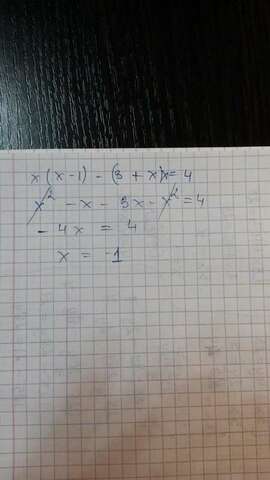 x(x-1) - (3 + x)x = 4
x² - x - 3x - x² = 4
- 4x = 4
x = -1